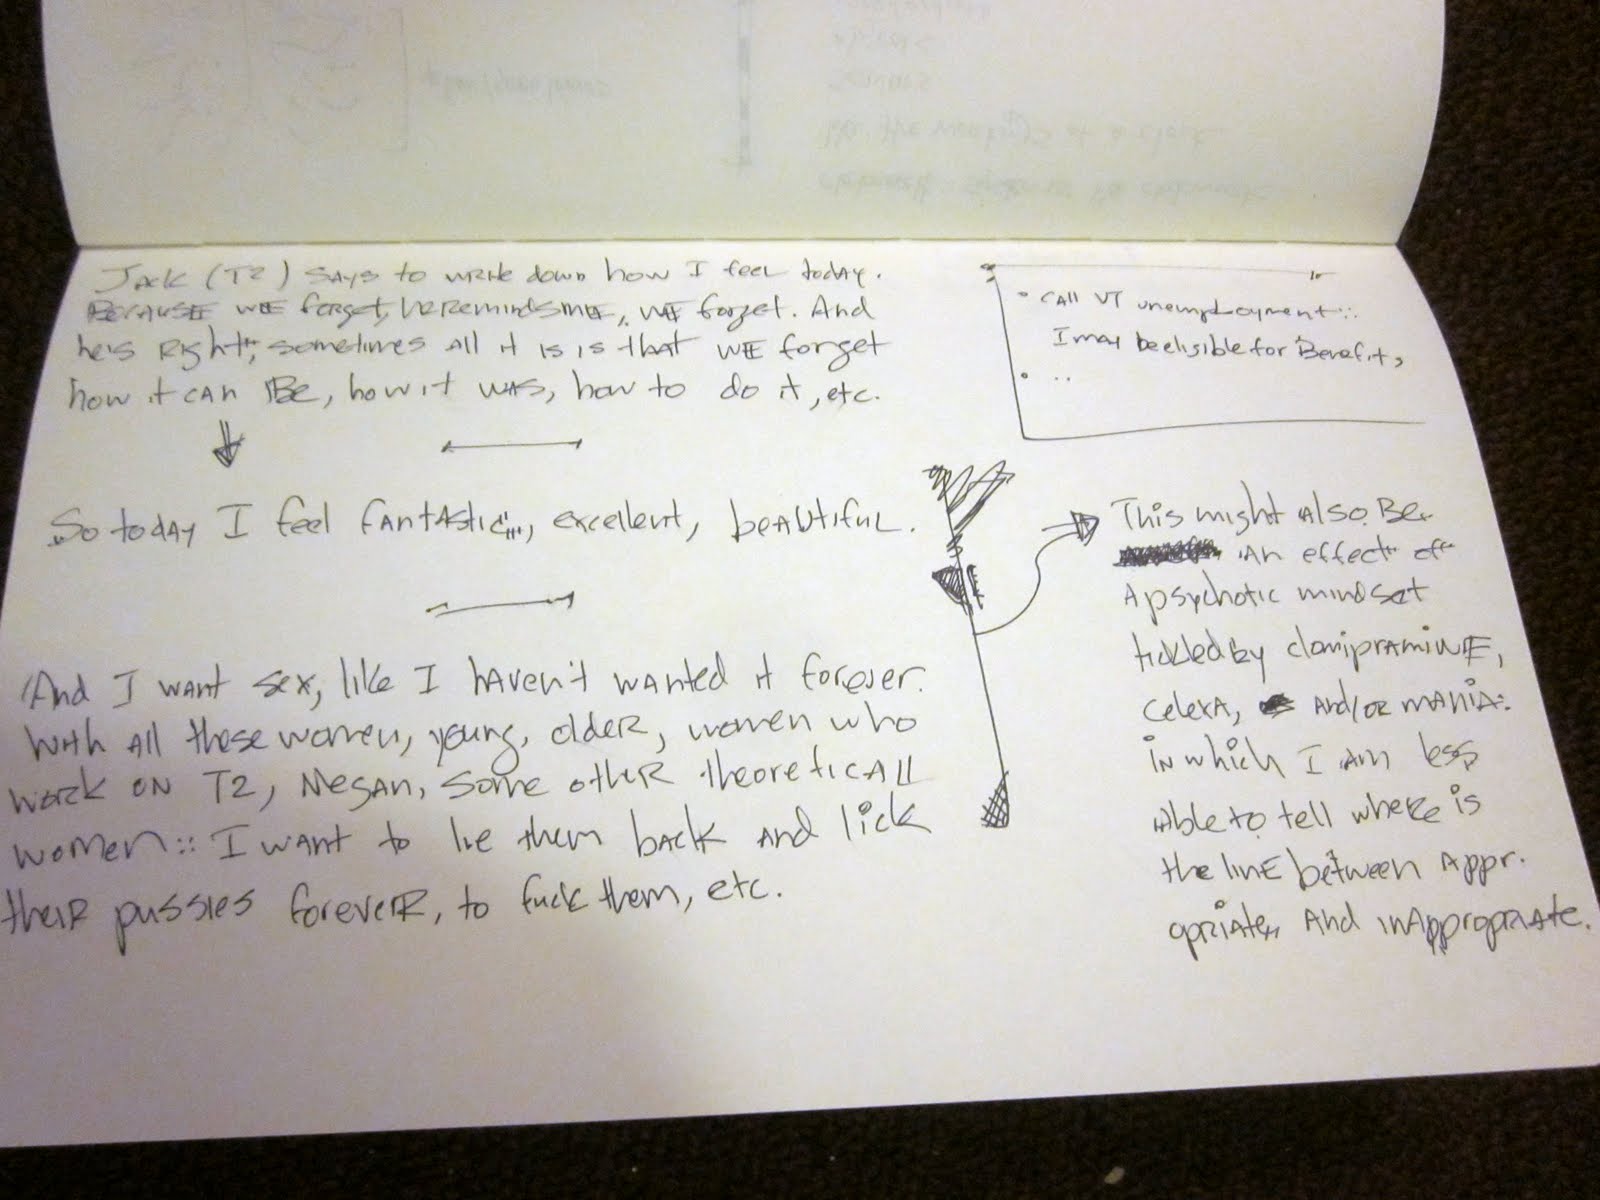 Jack (T2) says to write down how I feel today.
Because we forget, he reminds me, we forget. And
he's right, sometimes all it is is that we forget
how it can Be, how it was, how to do it, etc.
So today I feel fantastic, excellent, beautiful.
And I want sex, like I haven't wanted it forever.
With all these women, young, older, women who
work on T2, Megan, some other theoreticall
women:: I want to lie them back and lick
their pussies forever, to fuck them, etc.
• Call VT unemployment::
I may be eligible for Benefits
• ..
This might also Be
an effect of
a psychotic mindset
tickled by clomipramine,
celexa, and/or mania:
in which I am less
able to tell where is
the line between appr.
opriate, and inappropriate.